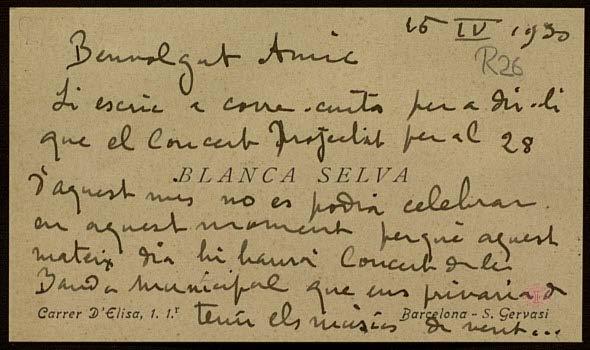 15 IV 1930
R26
Benvolgut Amic
Li escric a corre-cuita per a dir-li
que el Concert Projectat per al 28
BLANCA SELVA
d'aquest mes no es podrà celebrar
en aquest moment perquè aquest
mateix dia hi haurà Concert de la
Banda Municipal que ens privaria de
Carrer D'Elisa, 1. 1.r
Barcelona - S. Gervasi
tenir els músics de vent...